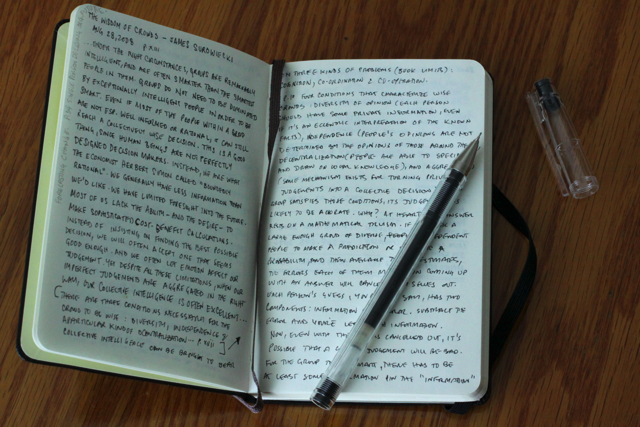 THE WISDOM OF CROWDS - JAMES SUROWIECKI
AUG 28, 2008 P XIII
...UNDER THE RIGHT CIRCUMSTANCES, GROUPS ARE REMARKABLY
INTELLIGENT, AND ARE OFTEN SMARTER THAN THE SMARTEST
PEOPLE IN THEM. GROUPS DO NOT NEED TO BE DOMINATED
BY EXCEPTIONALLY INTELLIGENT PEOPLE IN ORDER TO BE
SMART. EVEN IF MOST OF THE PEOPLE WITHIN A GROUP
ARE NOT ESP. WELL-INFORMED OR RATIONAL, IT CAN STILL
REACH A COLLECTIVELY WISE DECISION. THIS IS A GOOD
THING, SINCE HUMAN BEINGS ARE NOT PERFECTLY
DESIGNED DECISION MAKERS. INSTEAD, WE ARE WHAT
THE ECONOMIST HERBERT SIMON CALLED "BOUNDEDLY
RATIONAL". WE GENERALLY HAVE LESS INFORMATION THAN
WE'D LIKE. WE HAVE LIMITED FORESIGHT INTO THE FUTURE.
MOST OF US LACK THE ABILITY - AND THE DESIRE - TO
MAKE SOPHISTICATED COST-BENEFIT CALCULATIONS.
INSTEAD OF INSISTING ON FINDING THE BEST POSSIBLE
DECISION, WE WILL OFTEN ACCEPT ONE THAT SEEMS
GOOD ENOUGH. AND WE OFTEN LET EMOTION AFFECT OUR
JUDGEMENT. YET DESPITE ALL THESE LIMITATIONS, WHEN OUR
IMPERFECT JUDGEMENTS ARE AGGREGATED IN THE RIGHT
WAY, OUR COLLECTIVE INTELLIGENCE IS OFTEN EXCELLENT...
THERE ARE THREE CONDITIONS NECESSARY FOR THE
CROWD TO BE WISE: DIVERSITY, INDEPENDENCE &
A PARTICULAR KIND OF DECENTRALIZATION...
COLLECTIVE INTELLIGENCE CAN BE BROUGHT TO BEAR
ON THREE KINDS OF PROBLEMS (BOOK LIMITS):
COGNITION, CO-ORDINATION & CO-OPERATION.
FOUR CONDITIONS THAT CHARACTERIZE WISE
CROWDS: DIVERSITY OF OPINION (EACH PERSON
SHOULD HAVE SOME PRIVATE INFORMATION, EVEN
IF IT'S AN ECCENTRIC INTERPRETATION OF THE KNOWN
FACTS), INDEPENDENCE (PEOPLE'S OPINIONS ARE NOT
DETERMINED BY THE OPINIONS OF THOSE AROUND
DECENTRALIZATION (PEOPLE ARE ABLE TO SPECIALIZE
AND DRAW ON LOCAL KNOWLEDGE), AND
(SOME MECHANISM EXISTS FOR TURNING PRIVATE
JUDGEMENTS INTO A COLLECTIVE DECISION
GROUP SATISFIES THESE CONDITIONS, ITS
LIKELY TO BE ACCURATE. WHY? AT HEART, ANSWER
RESTS ON A MATHEMATICAL TRUISM. IF
LARGE ENOUGH GROUP OF DIVERSE, INDEPENDENT
PEOPLE TO MAKE A PREDICTION OR
PROBABILITY, AND THEN AVERAGE ESTIMATES,
THE ERRORS EACH OF THEM MAKES IN COMING UP
WITH AN ANSWER WILL CANCEL SELVES OUT.
EACH PERSON'S GUESS, YOU SAY, HAS TWO
COMPONENTS: INFORMATION SUBTRACT THE
ERROR AND YOU'RE LEFT INFORMATION.
NOW, EVEN WITH THE CANCELLED OUT, IT'S
POSSIBLE THAT A JUDGEMENT WILL BE BAD.
FOR THE GROUP THERE HAS TO BE
AT LEAST SOME INFORMATION IN THE "INFORMATION"